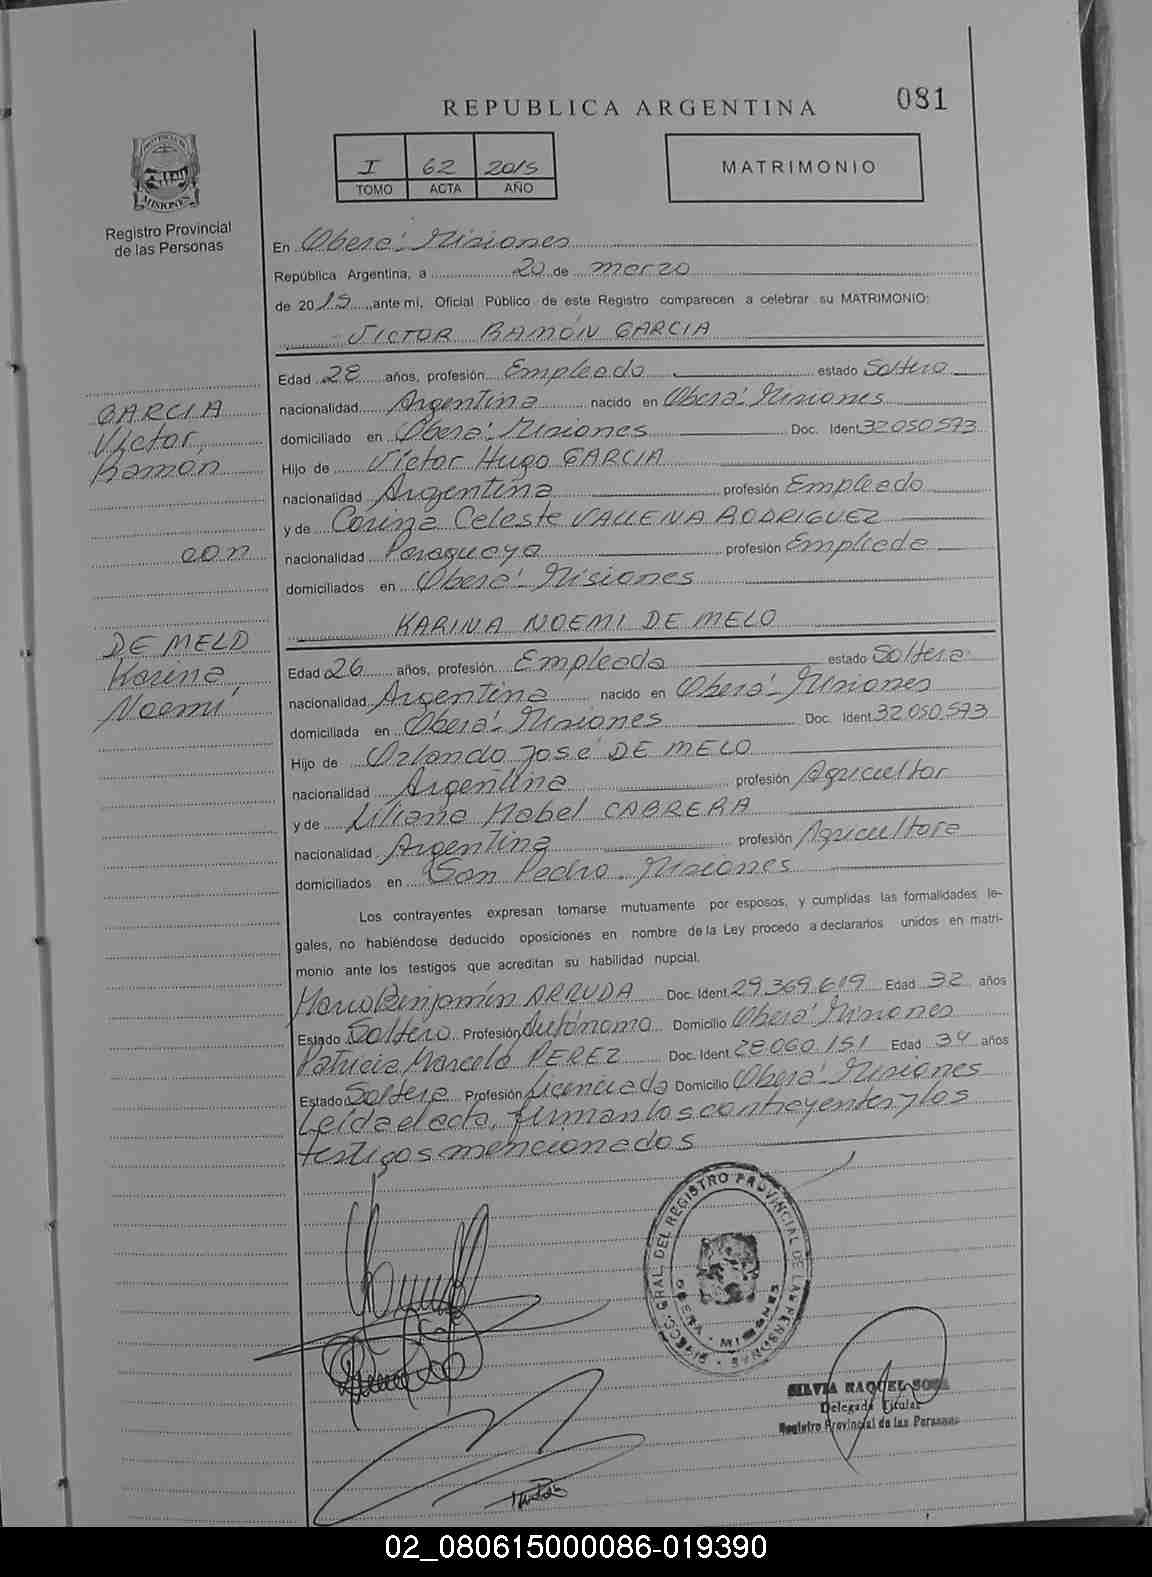 REPUBLICA ARGENTINA
081
I 62 2015
TOMO ACTA AÑO
MATRIMONIO
PROVINCIA DE MISIONES
Registro Provincial
de las Personas
En Oberá - Misiones
República Argentina, a 20 de marzo
de 2015, ante mi, Oficial Público de este Registro comparecen a celebrar su MATRIMONIO:
VICTOR RAMÓN GARCIA
Edad 28 años, profesión Empleado estado Soltero
nacionalidad Argentina nacido en Oberá - Misiones
domiciliado en Oberá - Misiones Doc. Ident 32050573
Hijo de Victor Hugo GARCIA
nacionalidad Argentina profesión Empleado
y de Corina Celeste VALLENA RODRIGUEZ
nacionalidad Paraguaya profesión Empleada
domiciliados en Oberá - Misiones
KARINA NOEMI DE MELO
Edad 26 años, profesión Empleada estado Soltera
nacionalidad Argentina nacido en Oberá - Misiones
domiciliada en Oberá - Misiones Doc. Ident 32050573
Hijo de Orlando José DE MELO
nacionalidad Argentina profesión Agricultor
y de Liliana Mabel CABRERA
nacionalidad Argentina profesión Agricultora
domiciliados en San Pedro - Misiones
GARCIA
Víctor
Ramón
con
DE MELO
Karina
Noemí
Los contrayentes expresan tomarse mutuamente por esposos, y cumplidas las formalidades le-
gales, no habiéndose deducido oposiciones en nombre de la Ley procedo a declararlos unidos en matri-
monio ante los testigos que acreditan su habilidad nupcial.
Mario Benjamín ARRUDA Doc. Ident 29.369.619 Edad 32 años
Estado Soltero Profesión Autónomo Domicilio Oberá - Misiones
Patricia Marcela PEREZ Doc. Ident 28.060.151 Edad 34 años
Estado Soltera Profesión Licenciada Domicilio Oberá - Misiones
Leída el acta, firman los contrayentes y los
testigos mencionados
DIRECC. GRAL. DEL REGISTRO PROVINCIAL DE LAS PERSONAS
OBERA - MISIONES
SILVIA RAQUEL SOSA
Delegada Titular
Registro Provincial de las Personas
02_080615000086-019390